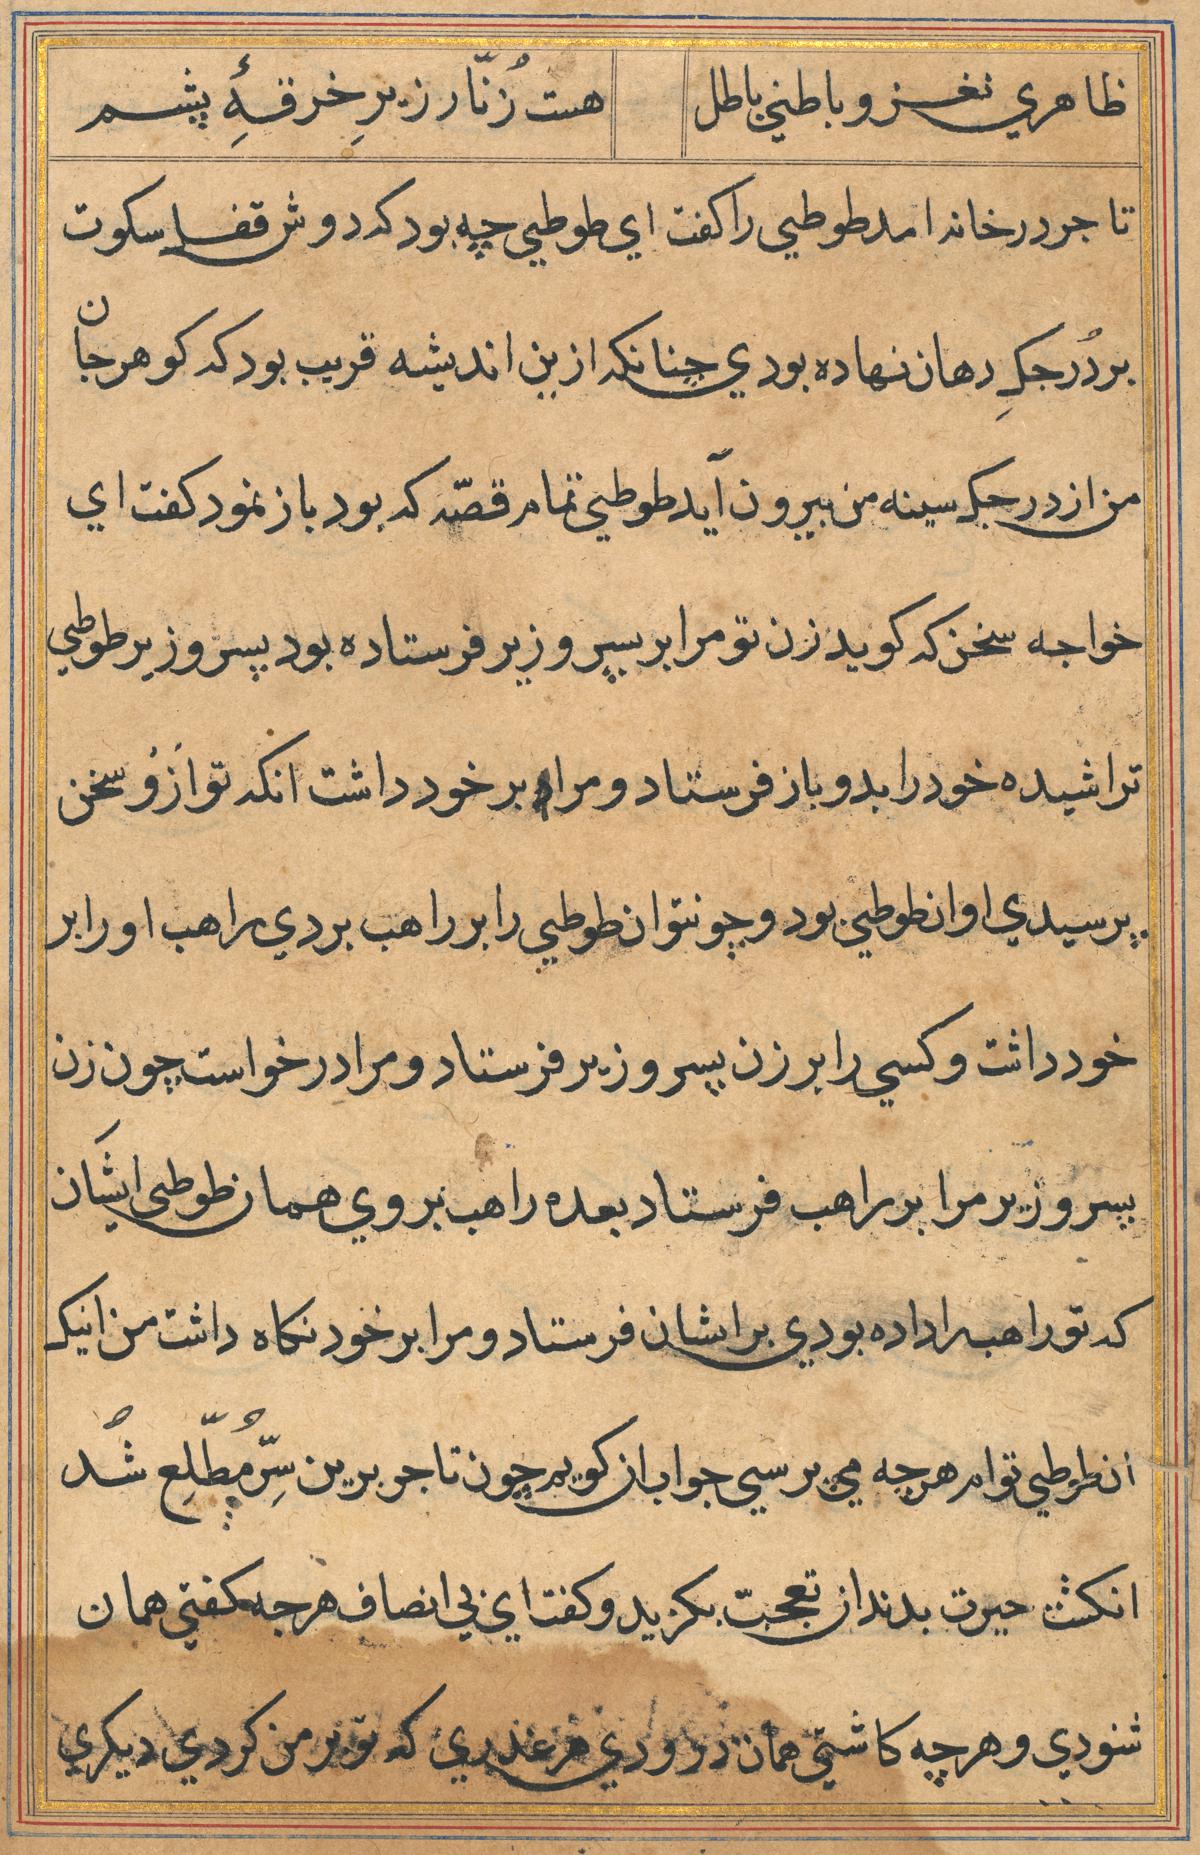 ظاهري نغز و باطني باطل هست زُنّار زیرِ خرقهٔ پشم
تاجر در خانه امد طوطیي را کفت اي طوطیي چه بود که دوش قفل سکوت
بر دُرجکِ دهان نهاده بودي چنانکه ازین اندیشه قریب بود که کوهر جان
من از درجک سینه من بیرون آید طوطیي تمام قصّه که بود باز نمود کفت اي
خواجه سخن که کوید زن تو مرا بر پسر وزیر فرستاده بود پسر وزیر طوطیي
تراشیده خود را بدو باز فرستاد و مرا بر خود داشت انکه تو ازو سخن
پرسیدي او ان طوطیي بود و چون توان طوطیي را بر راهب بردي راهب او را بر
خود داشت و کسي را بر زن پسر وزیر فرستاد و مرا در خواست چون زن
پسر وزیر مرا بر راهب فرستاد بعده راهب بر وي همان طوطیي ایشان
که تو راهب را داده بودي بر ایشان فرستاد و مرا بر خود نکاه داشت من اینک
ان طوطیي توام هرچه مي پرسي جواب ان کویم چون تاجر برین سِرّ مُطّلِع شُد
انکشت حیرت بدندان تعجب بکزید و کفت اي بي انصاف هرچه کفتي همان
شنودي و هرچه کاشتي همان درودي هر عذري که تو بر من کردي دیکري